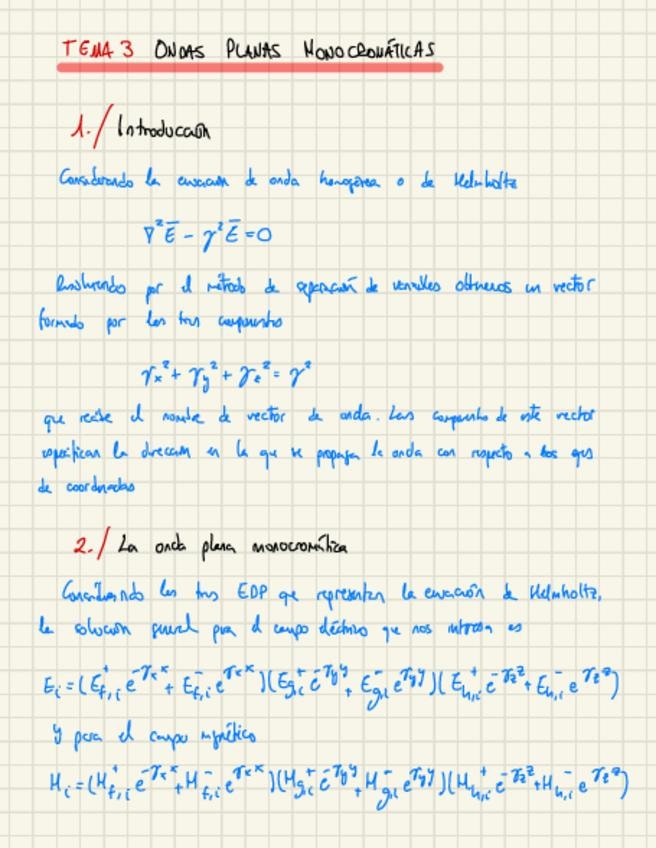 TEMA 3 ONDAS PLANAS MONOCROMÁTICAS
1./ Introducción
Considerando la ecuación de onda homogénea o de Helmholtz
∇²Ē - γ²Ē = 0
Resolviendo por el método de separación de variables obtenemos un vector
formado por las tres componentes
γx² + γy² + γz² = γ²
que recibe el nombre de vector de onda. Las componentes de este vector
especifican la dirección en la que se propaga la onda con respecto a los ejes
de coordenadas
2./ La onda plana monocromática
Considerando las tres EDP que representan la ecuación de Helmholtz,
la solución general para el campo eléctrico que nos interesa es
E_i = (E_{f,i}^+ e^{-γx x} + E_{f,i}^- e^{γx x})(E_{g,i}^+ e^{-γy y} + E_{g,i}^- e^{γy y})(E_{h,i}^+ e^{-γz z} + E_{h,i}^- e^{γz z})
y para el campo magnético
H_i = (H_{f,i}^+ e^{-γx x} + H_{f,i}^- e^{γx x})(H_{g,i}^+ e^{-γy y} + H_{g,i}^- e^{γy y})(H_{h,i}^+ e^{-γz z} + H_{h,i}^- e^{γz z})